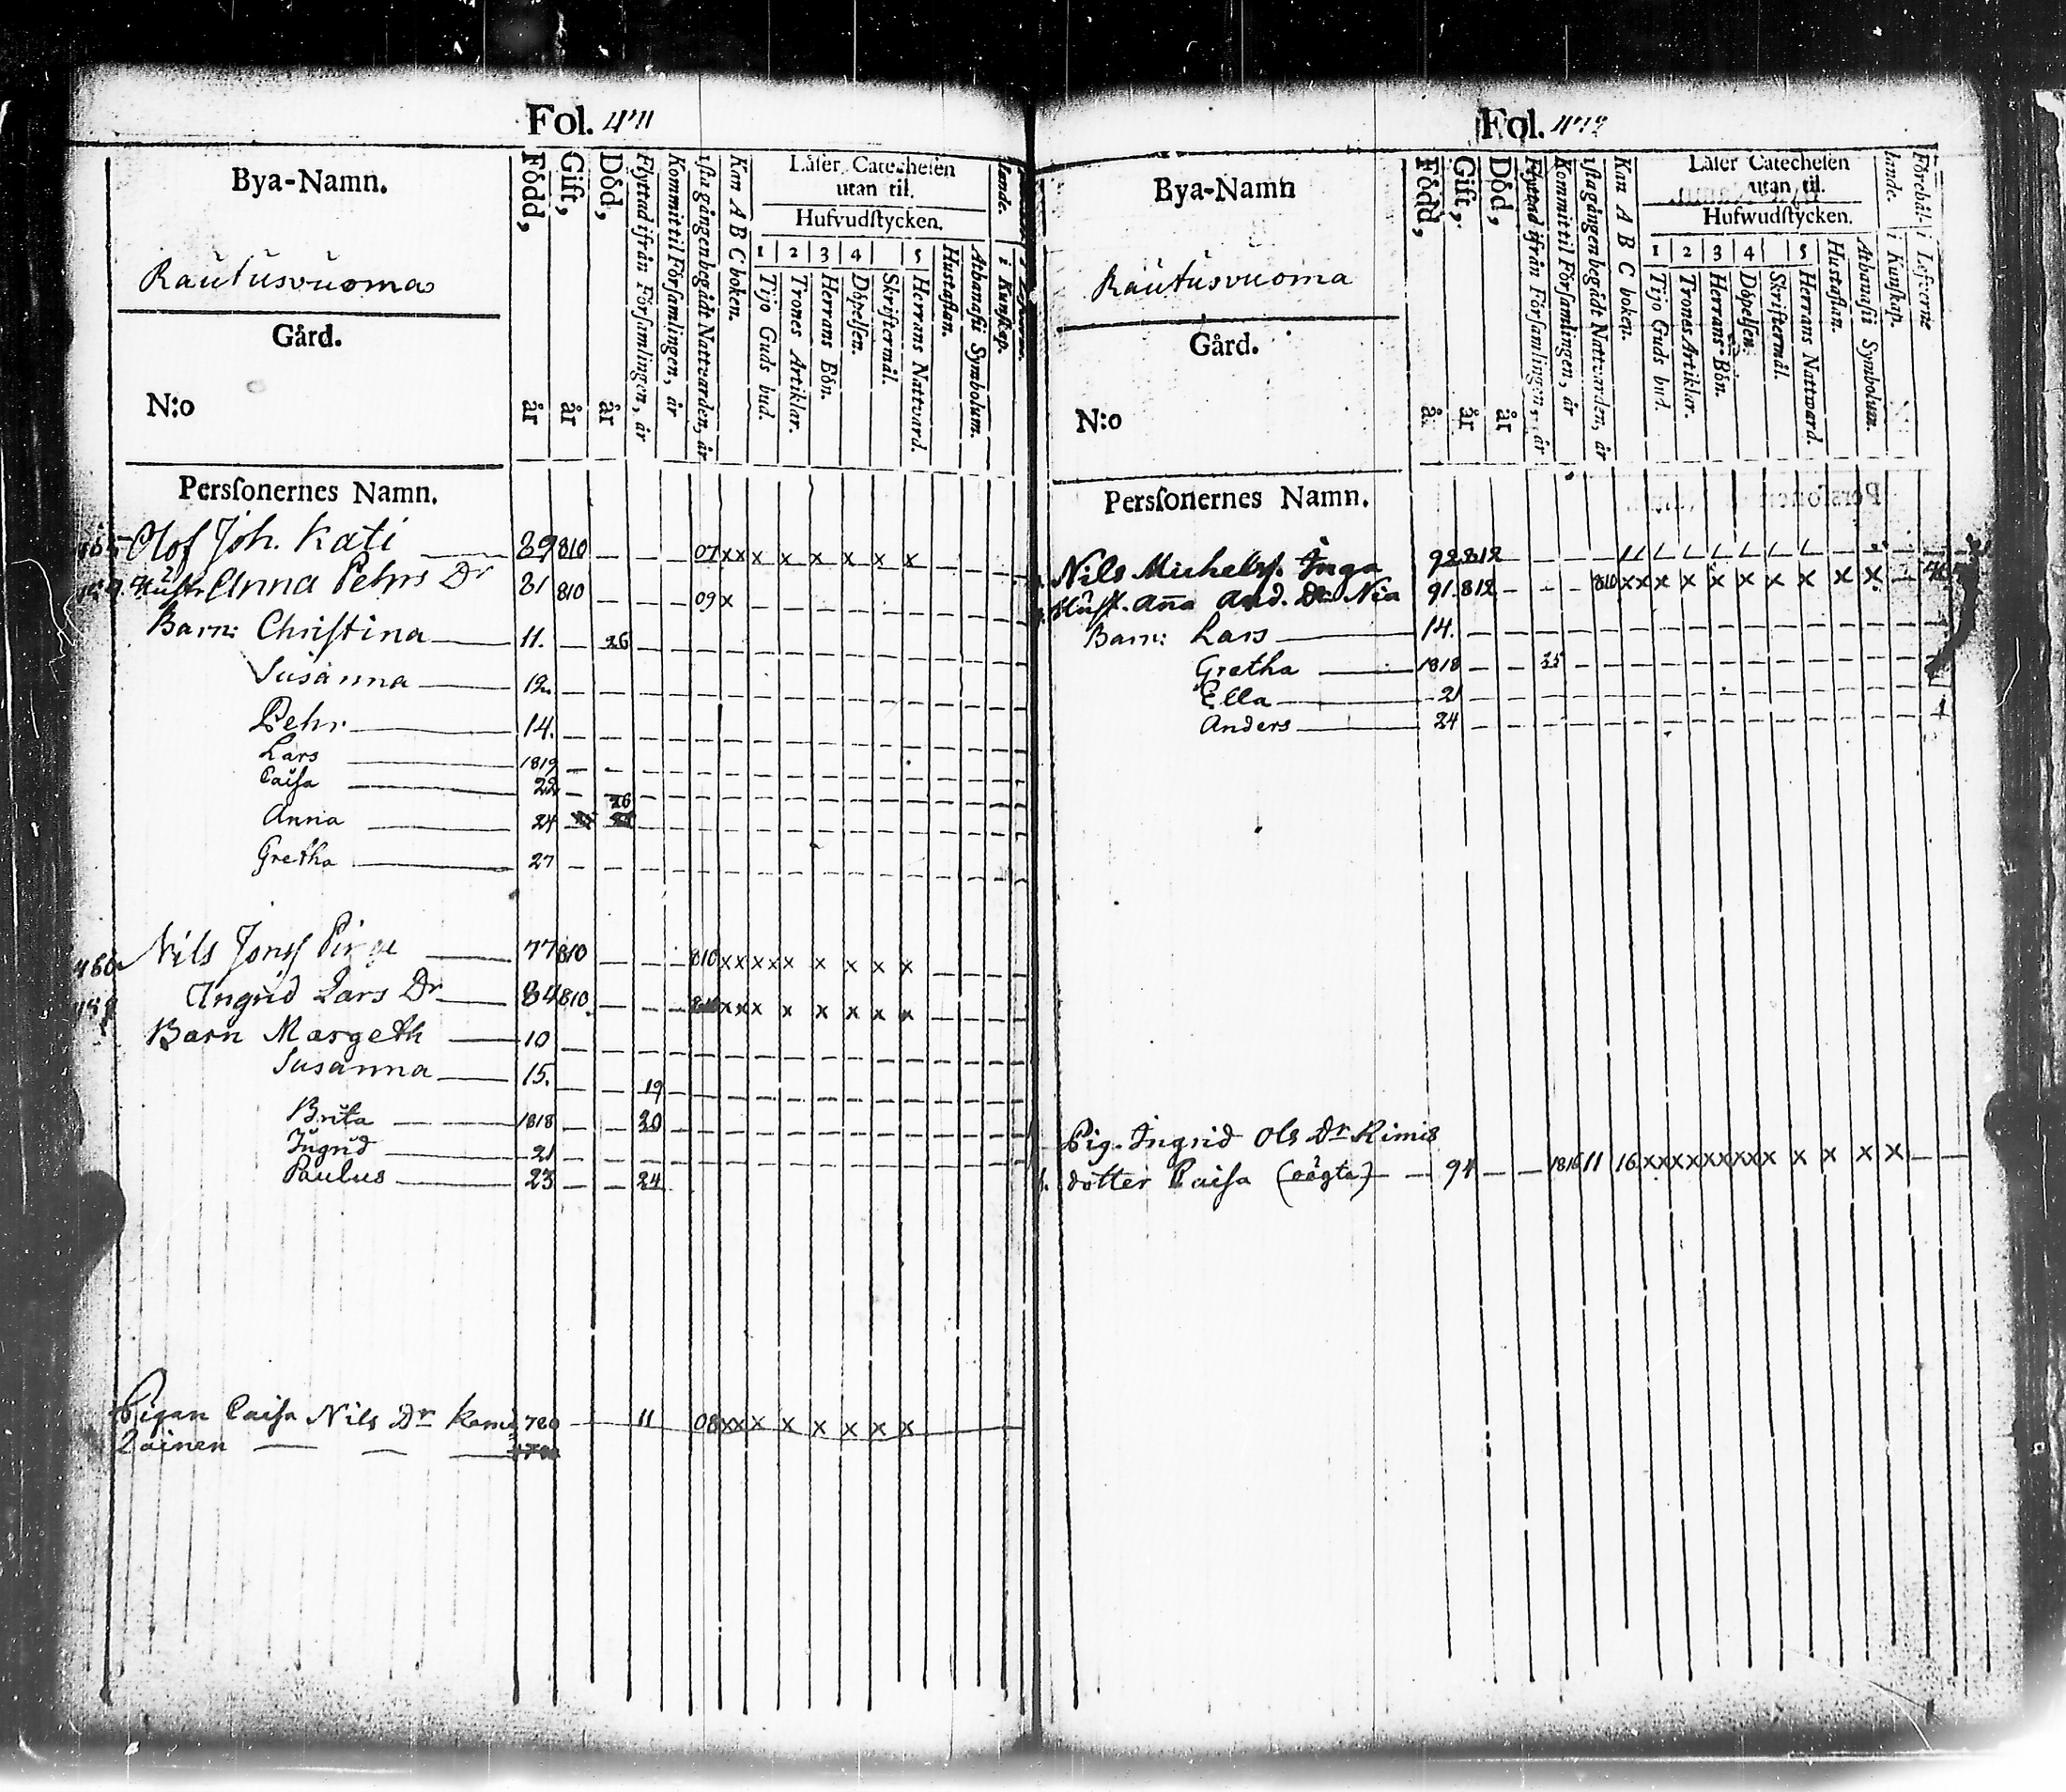 Fol. 471
Bya-Namn.
Rautusvuoma
Gård.
N:o
Persſonernes Namn.
Född, år
Gift, år
Död, år
Flyttad ifrån Församlingen, år
Kommit til Församlingen, år
1sta gången begådt Nattvarden, år
Kan A B C boken.
Låſer Catecheſen
utan til.
Hufvudſtycken.
1 2 3 4 5
Tijo Guds bud.
Trones Artiklar.
Herrans Bön.
Döpelſen.
Skriftermål.
Herrans Nattvard.
Huſtaflan.
Athanaſii Symbolum.
i Kunſkap.
Olof Joh. Kati 89 810 — — — 07 x x x x x x x x x
Huſtr Anna Pehrs Dr 81 810 — — — 09 x
Barn: Chriſtina 11. — 26
Susanna 12.
Pehr 14.
Lars 1819
Caiſa 22
26
Anna 24
Gretha 27
Nils Jonſ 77 810 — — — 810 x x x x x x x x x
Ingrid Lars Dr 84 810 — — — x x x x x x x x
Barn Margeth 10
Susanna 15. — — 19
Brita 1818 — — 20
Ingrid 21
Paulus 23 — — 24
Pigan Caiſa Nils Dr 780 — — 11 08 x x x x x x x x
Lainen
Fol. 472
Bya-Namn
Rautusvuoma
Gård.
N:o
Persſonernes Namn.
Född, år
Gift, år
Död, år
Flyttad ifrån Församlingen, år
Kommit til Församlingen, år
1sta gången begådt Nattvarden, år
Kan A B C boken.
Låſer Catecheſen
utan til.
Hufwudſtycken.
1 2 3 4 5
Tijo Guds bud.
Trones Artiklar.
Herrans Bön.
Döpelſen.
Skriftermål.
Herrans Nattward.
Huſtaflan.
Athanaſii Symbolum.
i Kunſkap.
i Lefverne
Nils Michelsſ. Inga 92 812
Huſt. Anna And. Dr Nia 91. 812 — — — 810 x x x x x x x x x x x
Barn: Lars 14.
Gretha 1818
Ella 21
Anders 24
Pig. Ingrid Ols Dr Kimis
dotter Caiſa (oägta) — 94 — — 1816 11 16 x x x x x x x x x x x x x